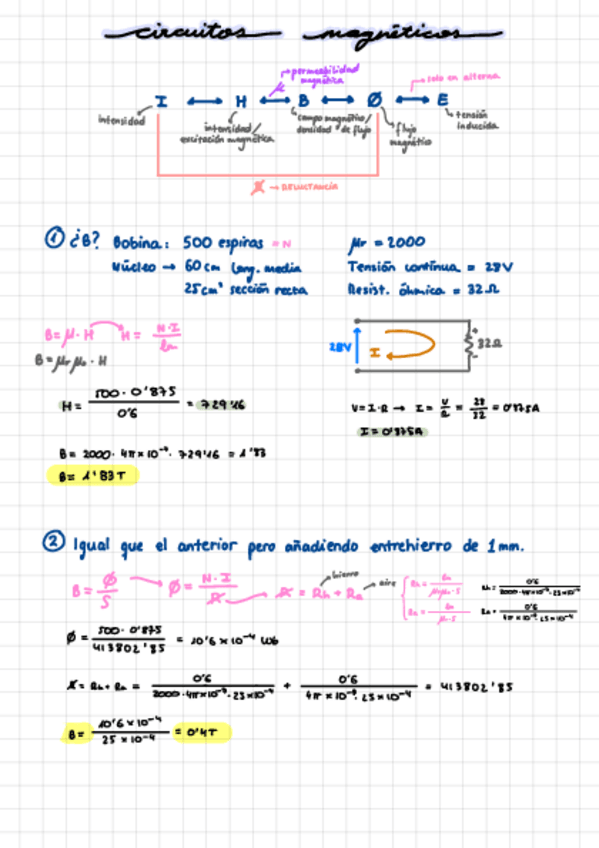 circuitos magnéticos
permeabilidad magnética
solo en alterna
I ↔ H ↔ B ↔ Ø ↔ E
intensidad
intensidad/ excitación magnética
campo magnético/ densidad de flujo
flujo magnético
tensión inducida
R → RELUCTANCIA
① ¿B? Bobina: 500 espiras = N
μr = 2000
Núcleo → 60 cm long. media
Tensión continua = 28V
25cm² sección recta
Resist. óhmica = 32Ω
B = μ · H
H = N·I / lm
B = μr μo · H
28V
I
32Ω
H = 500 · 0'875 / 0'6 = 729'16
V = I·R → I = V/R = 28/32 = 0'875A
I = 0'875A
B = 2000 · 4π×10⁻⁷ · 729'16 = 1'83
B = 1'83 T
② Igual que el anterior pero añadiendo entrehierro de 1mm.
hierro
aire
B = Ø/S
Ø = N·I / R
R = Rh + Ra
Ø = 500 · 0'875 / 413802'85 = 10'6 × 10⁻⁴ Wb
R = Rh + Ra = 0'6 / 2000·4π×10⁻⁷·25×10⁻⁴ + 0'6 / 4π × 10⁻⁷ · 25×10⁻⁴ = 413802'85
B = 10'6 × 10⁻⁴ / 25 × 10⁻⁴ = 0'4T